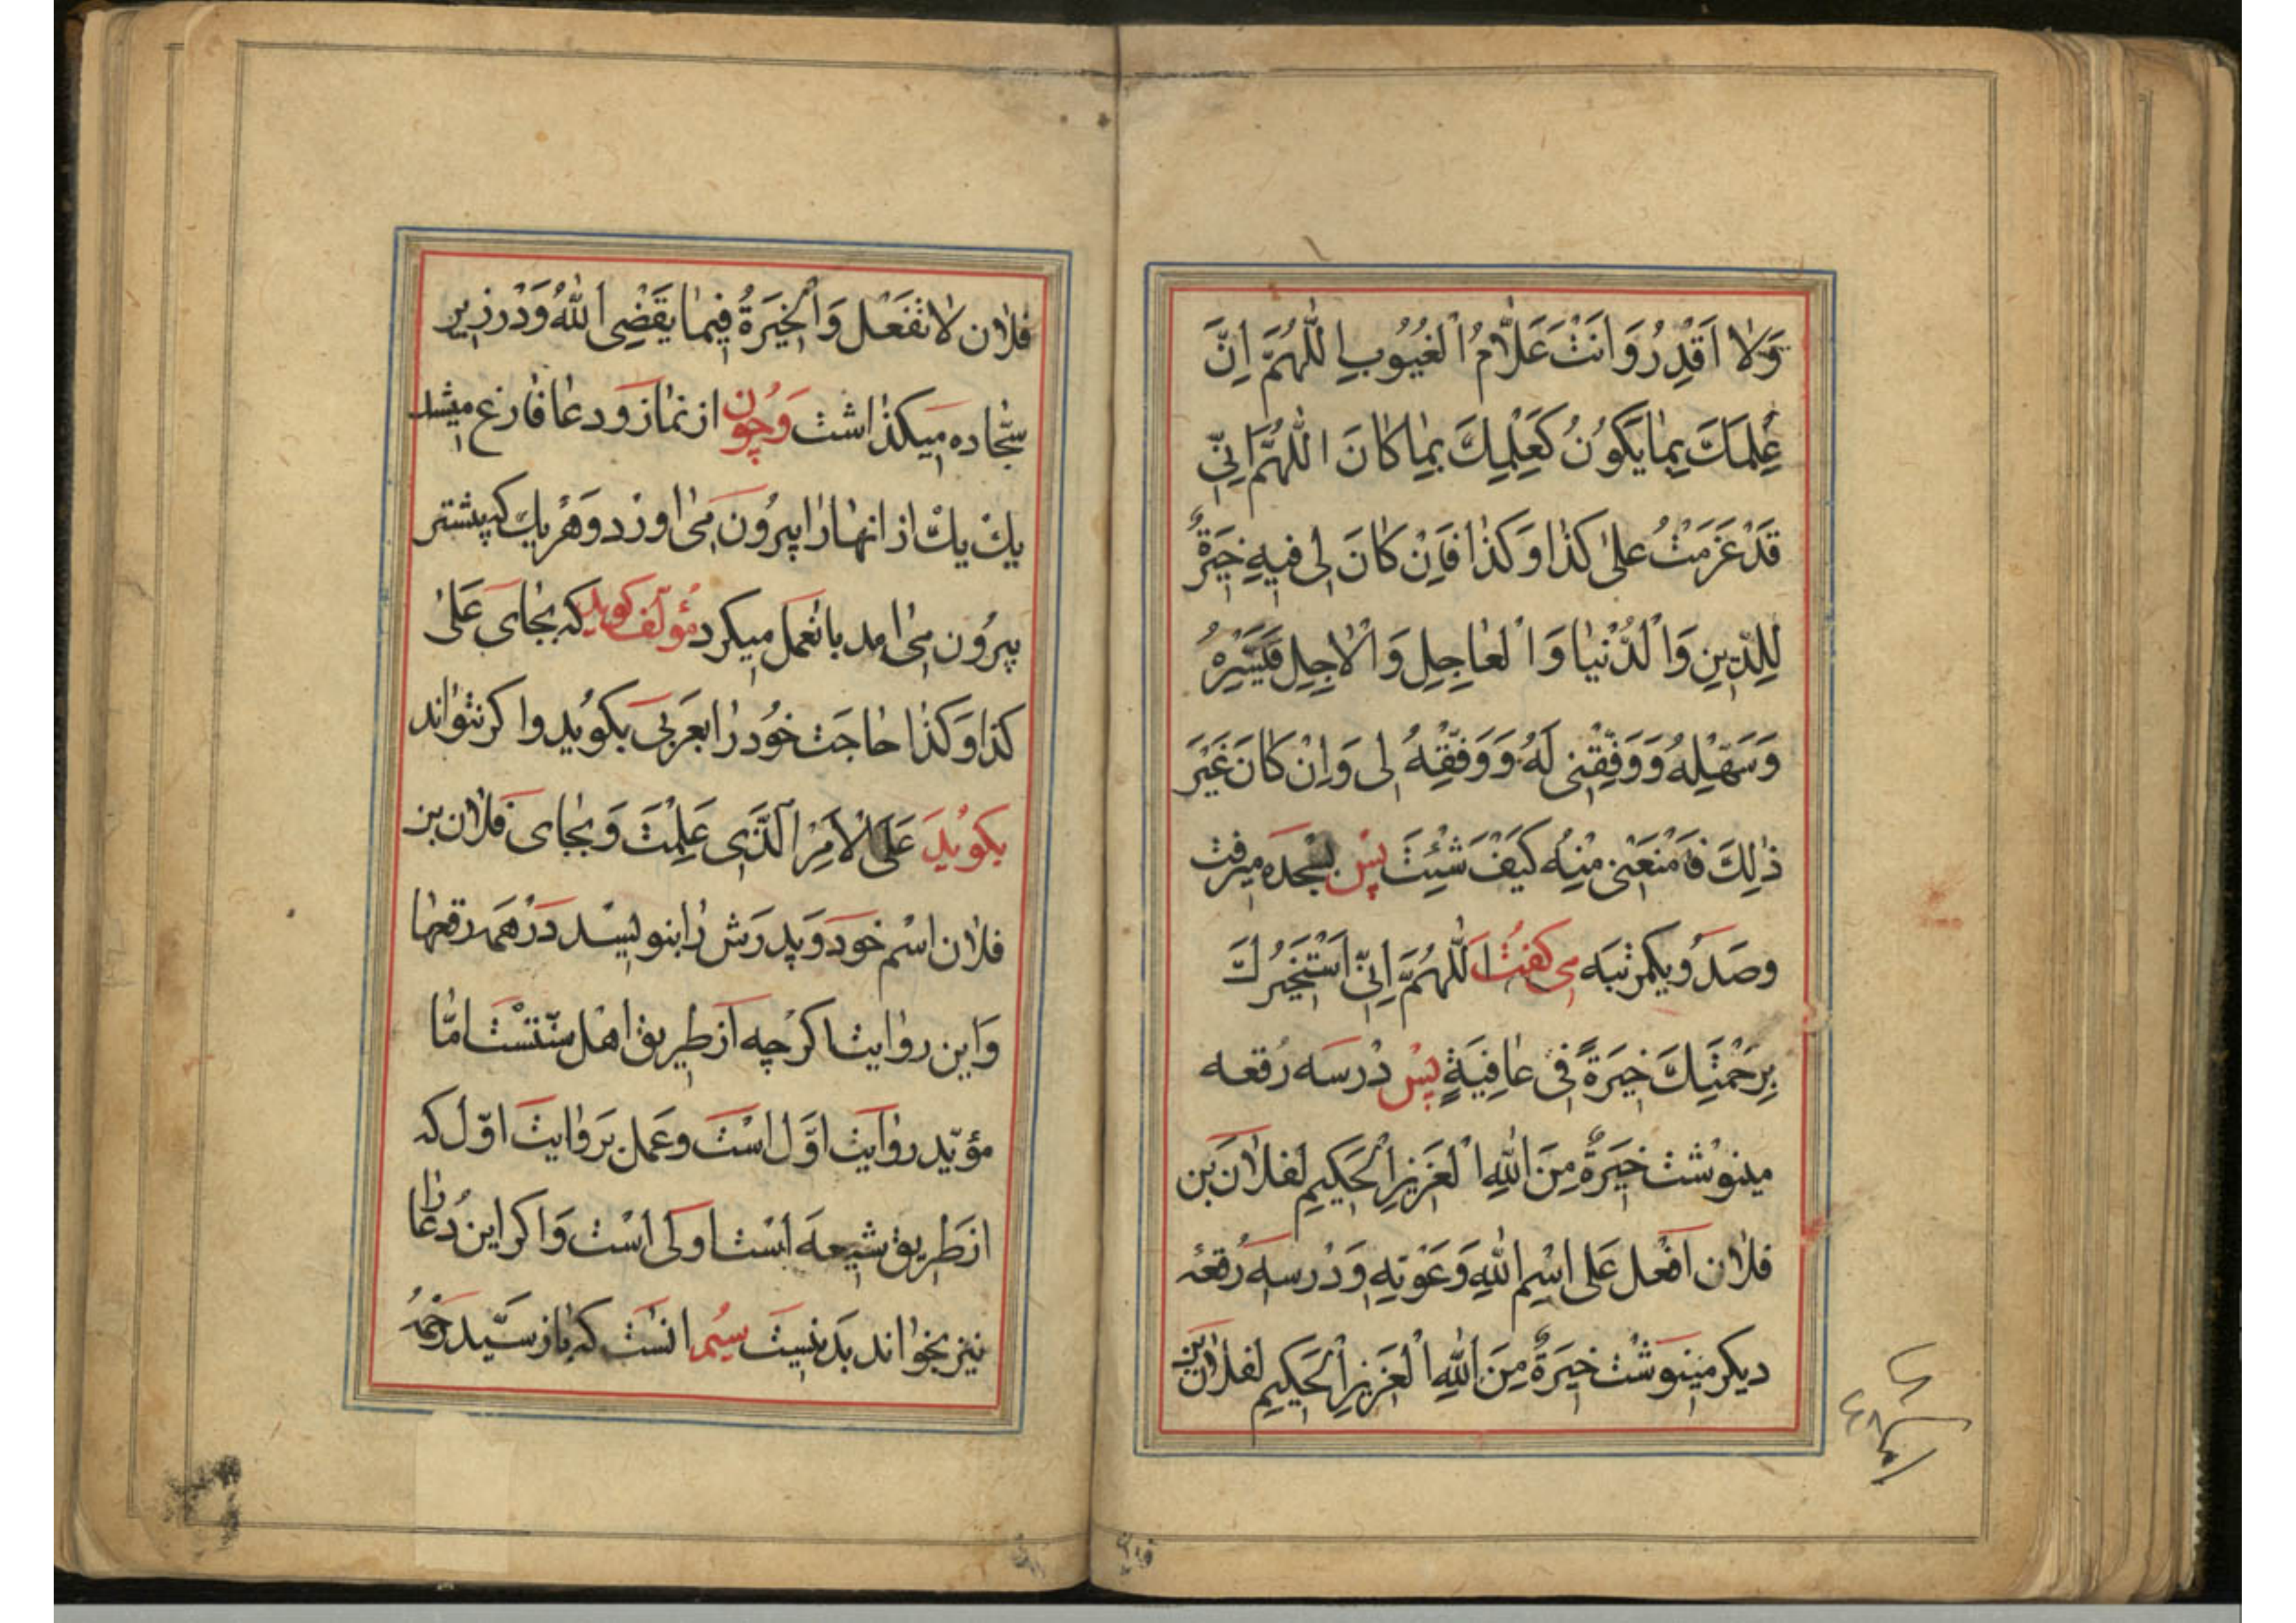 وَلا اَقْدِرُ وَاَنْتَ عَلّامُ الْغُيُوبِ اَللّهُمَّ اِنَّ
عِلمَكَ بِمايَكوُنُ كَعِلْمِكَ بِما كانَ اَللّهُمَّ اِنّي
قَدْ عَزَمْتُ عَلی كَذا وَكَذا فَاِنْ كانَ لی فيهِ خِيَرَةٌ
لِلدّينِ وَالْدُّنْيا وَالْعاجِلِ وَالْاجِلِ فَيَسِّرْهُ
وَسَهِّلْهُ وَوَفِّقْنی لَهُ وَوَفِّقْهُ لی وَاِنْ كانَ غَيْرَ
ذلِكَ فَامْنَعْنی مِنْهُ كَيْفَ شِئْتَ پس بسجده میرفت
وصد و یکمرتبه می کفت اَللّهُمَّ اِنّي اَسْتَخيرُكَ
بِرَحْمَتِكَ خِيَرَةً فی عافِيَةٍ پس در سه رقعه
مینوشت خِيَرَةٌ مِنَ اللهِ الْعَزيزِ الْحَكيمِ لفلان بن
فلان افْعل عَلی اسْمِ اللهِ وَعَوْنِهِ وَدر سه رقعهٔ
دیکر مینوشت خِيَرَةٌ مِنَ اللهِ الْعَزيزِ الْحَكيمِ لفلان بن
فلان لاتَفْعَل وَالْخِيَرَةُ فيما يَقْضِی اللهُ وَدر زیر
سجّاده میکذاشت وَچون از نماز و دعا فارغ میشد
یك یك از انها را بیرون می اورد و هر یك که پیشتر
بیرون می امد بان عمل میکرد مؤلف کوید که بجای عَلی
كَذا وَكَذا حاجت خود را بعربی بکوید و اکر نتواند
بکوید عَلَی الْاَمْرِ الَّذی عَلِمْتَ وَ بجای فلان بن
فلان اسم خود و پدرش را بنویسد در همه رقعها
وَاین روایت اکرچه از طریق اهل سنّتست امّا
مؤیّد روایت اوّل است و عمل بر وایت اوّل که
از طریق شیعه است اولی است وَاکر این دعا را
نیز بخواند بد نیست سیُم انست که باز سیّد رحمه